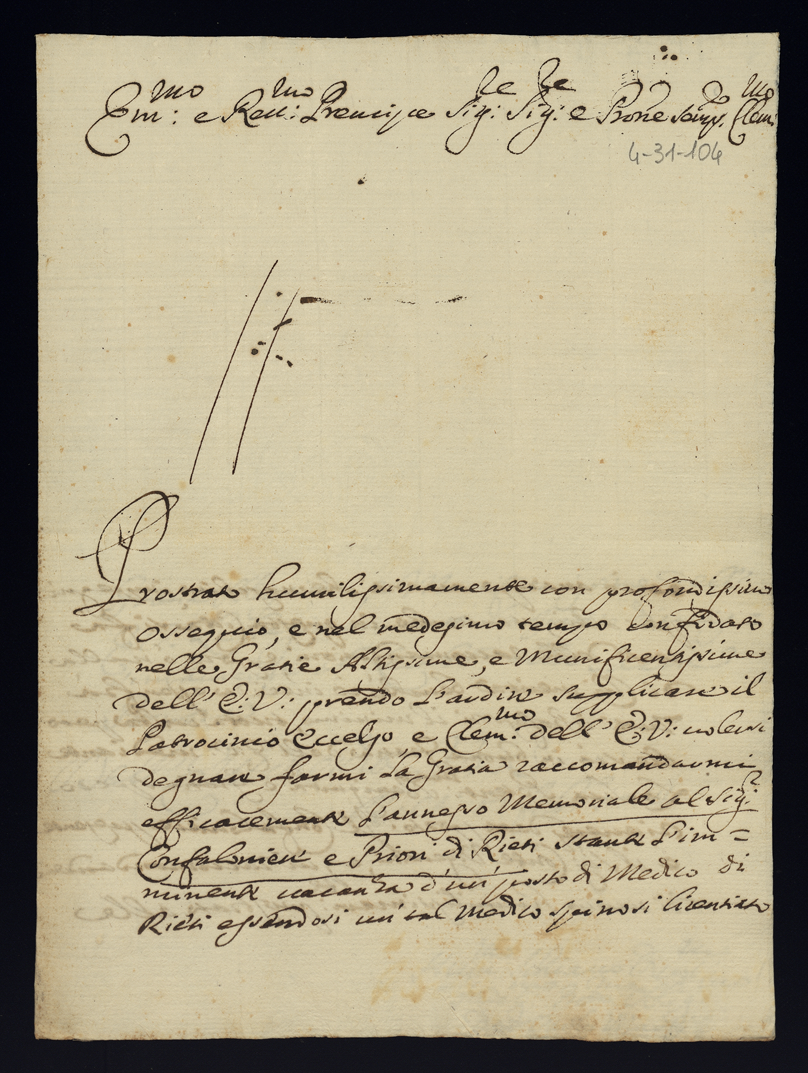 Em.mo e Reu.mo Prencipe Sig.re Sig.re e Prone semp. Clem.mo
4-31-104
Prostrato humilissimamente con profondissimo
Ossequio, e nel medesimo tempo confidato
nelle Gratie Altissime, e Munificentissime
dell' E: V: prendo l'ardire supplicare il
Patrocinio Eccelso e Clem.mo dell' E: V: uolersi
degnare farmi la Gratia raccomandarmi
efficacemente l'annesso Memoriale al Sig.r
Confaloniere e Priori di Rieti stante l'im=
minente uacanza d'un posto di Medico di
Rieti essendosi un tal Medico Spinosi licentiato